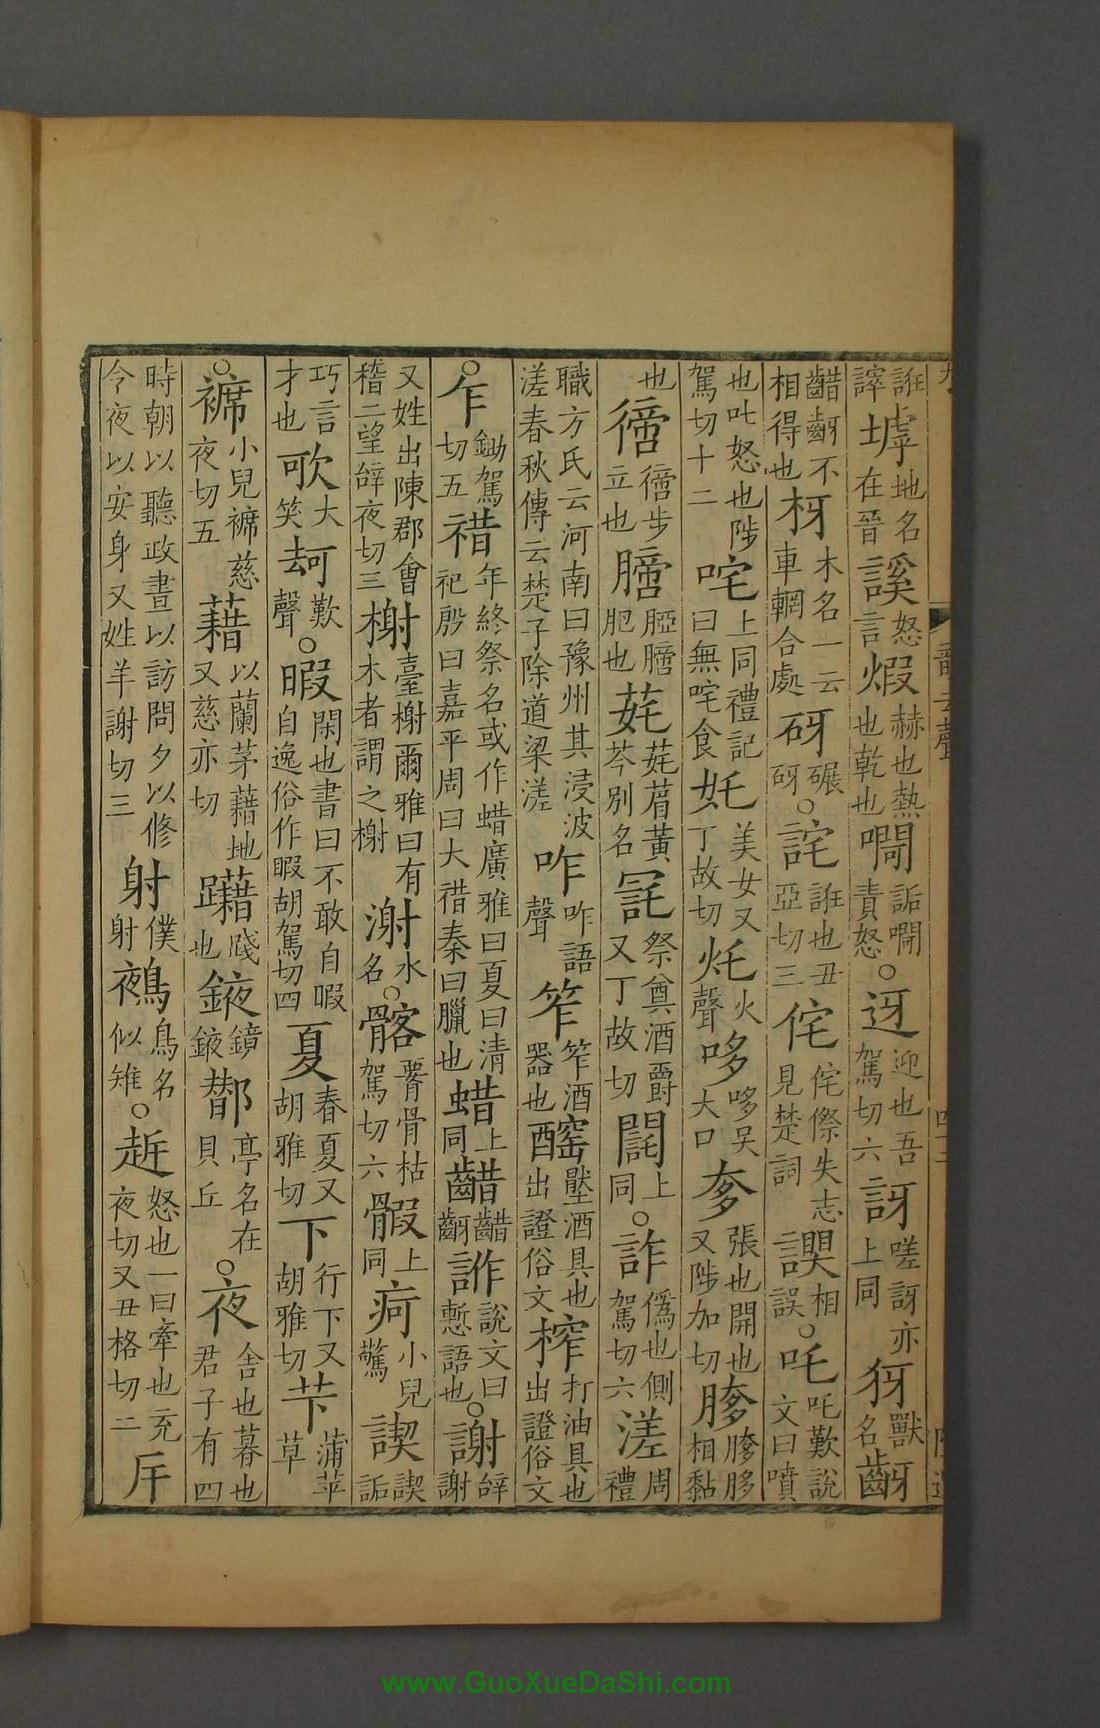 誑謼㙤地名在晉謑怒言煆赫也熱也乾也㗿詬㗿責怒○迓迎也吾駕切六訝嗟訝亦上同犽獸名齖
齰齖不相得也枒木名一云車輞合處砑碾砑○詫誑也丑亞切三侘侘傺失志見楚詞䜁相誤○吒吒歎說文曰噴
也叱怒也陟駕切十二咤上同禮記曰無咤食奼美女又丁故切灹火聲哆哆吴大口奓張也開也又陟加切䐒䐒䏧相黏
也㣛㣛步立也膪䐉膪肥也䒲䒲葿黃芩別名䆛祭奠酒爵又丁故切䦉上同○詐僞也側駕切六溠周禮
職方氏云河南曰豫州其浸波溠春秋傳云楚子除道梁溠咋咋語聲笮笮酒器也醡壓酒具也出證俗文榨打油具也出證俗文
○乍鋤駕切五䄍年終祭名或作蜡廣雅曰夏曰清祀殷曰嘉平周曰大䄍秦曰臘也蜡上同齰齰齖詐說文曰慙語也○謝辝謝
又姓出陳郡會稽二望辝夜切三榭臺榭爾雅曰有木者謂之榭㴬水名○髂䯊骨枯駕切六䯊上同疴小兒驚䜁詬
巧言才也㰤大笑㰦歎聲○暇閑也書曰不敢自暇自逸俗作睱胡駕切四夏春夏又胡雅切下行下又胡雅切芐蒲苹草
○褯小兒褯慈夜切五藉以蘭茅藉地又慈亦切躤踐也䤳鏡䤳㔣亭名在貝丘○夜舍也暮也君子有四
時朝以聽政晝以訪問夕以修令夜以安身又姓羊謝切三射僕射鵺鳥名似雉○䞣怒也一曰牽也充夜切又丑格切二㡿
www.GuoXueDaShi.com